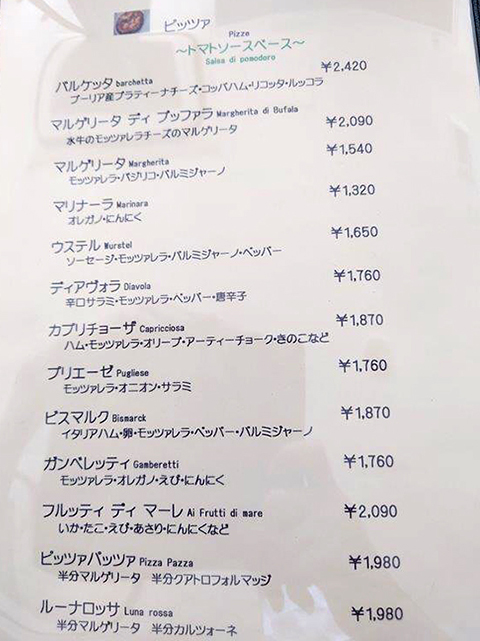 ピッツァ
Pizze
～トマトソースベース～
Salsa di pomodoro
バルケッタ barchetta ￥2,420
プーリア産ブラティーナチーズ・コッパハム・リコッタ・ルッコラ
マルゲリータ ディ ブッファラ Margherita di Bufala ￥2,090
水牛のモッツァレラチーズのマルゲリータ
マルゲリータ Margherita ￥1,540
モッツァレラ・バジリコ・パルミジャーノ
マリナーラ Marinara ￥1,320
オレガノ・にんにく
ウステル Wurstel ￥1,650
ソーセージ・モッツァレラ・パルミジャーノ・ペッパー
ディアヴォラ Diavola ￥1,760
辛口サラミ・モッツァレラ・ペッパー・唐辛子
カプリチョーザ Capricciosa ￥1,870
ハム・モッツァレラ・オリーブ・アーティーチョーク・きのこなど
プリエーゼ Pugliese ￥1,760
モッツァレラ・オニオン・サラミ
ビスマルク Bismarck ￥1,870
イタリアハム・卵・モッツァレラ・ペッパー・パルミジャーノ
ガンベレッティ Gamberetti ￥1,760
モッツァレラ・オレガノ・えび・にんにく
フルッティ ディ マーレ Ai Frutti di mare ￥2,090
いか・たこ・えび・あさり・にんにくなど
ピッツァパッツァ Pizza Pazza ￥1,980
半分マルゲリータ 半分クアトロフォルマッジ
ルーナロッサ Luna rossa ￥1,980
半分マルゲリータ 半分カルツォーネ